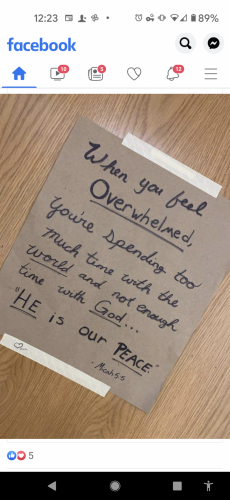 12:23
89%
facebook
10
5
12
When you feel
Overwhelmed,
you're spending too
much time with the
world and not enough
time with God...
"HE is our PEACE."
- Micah 5:5
5